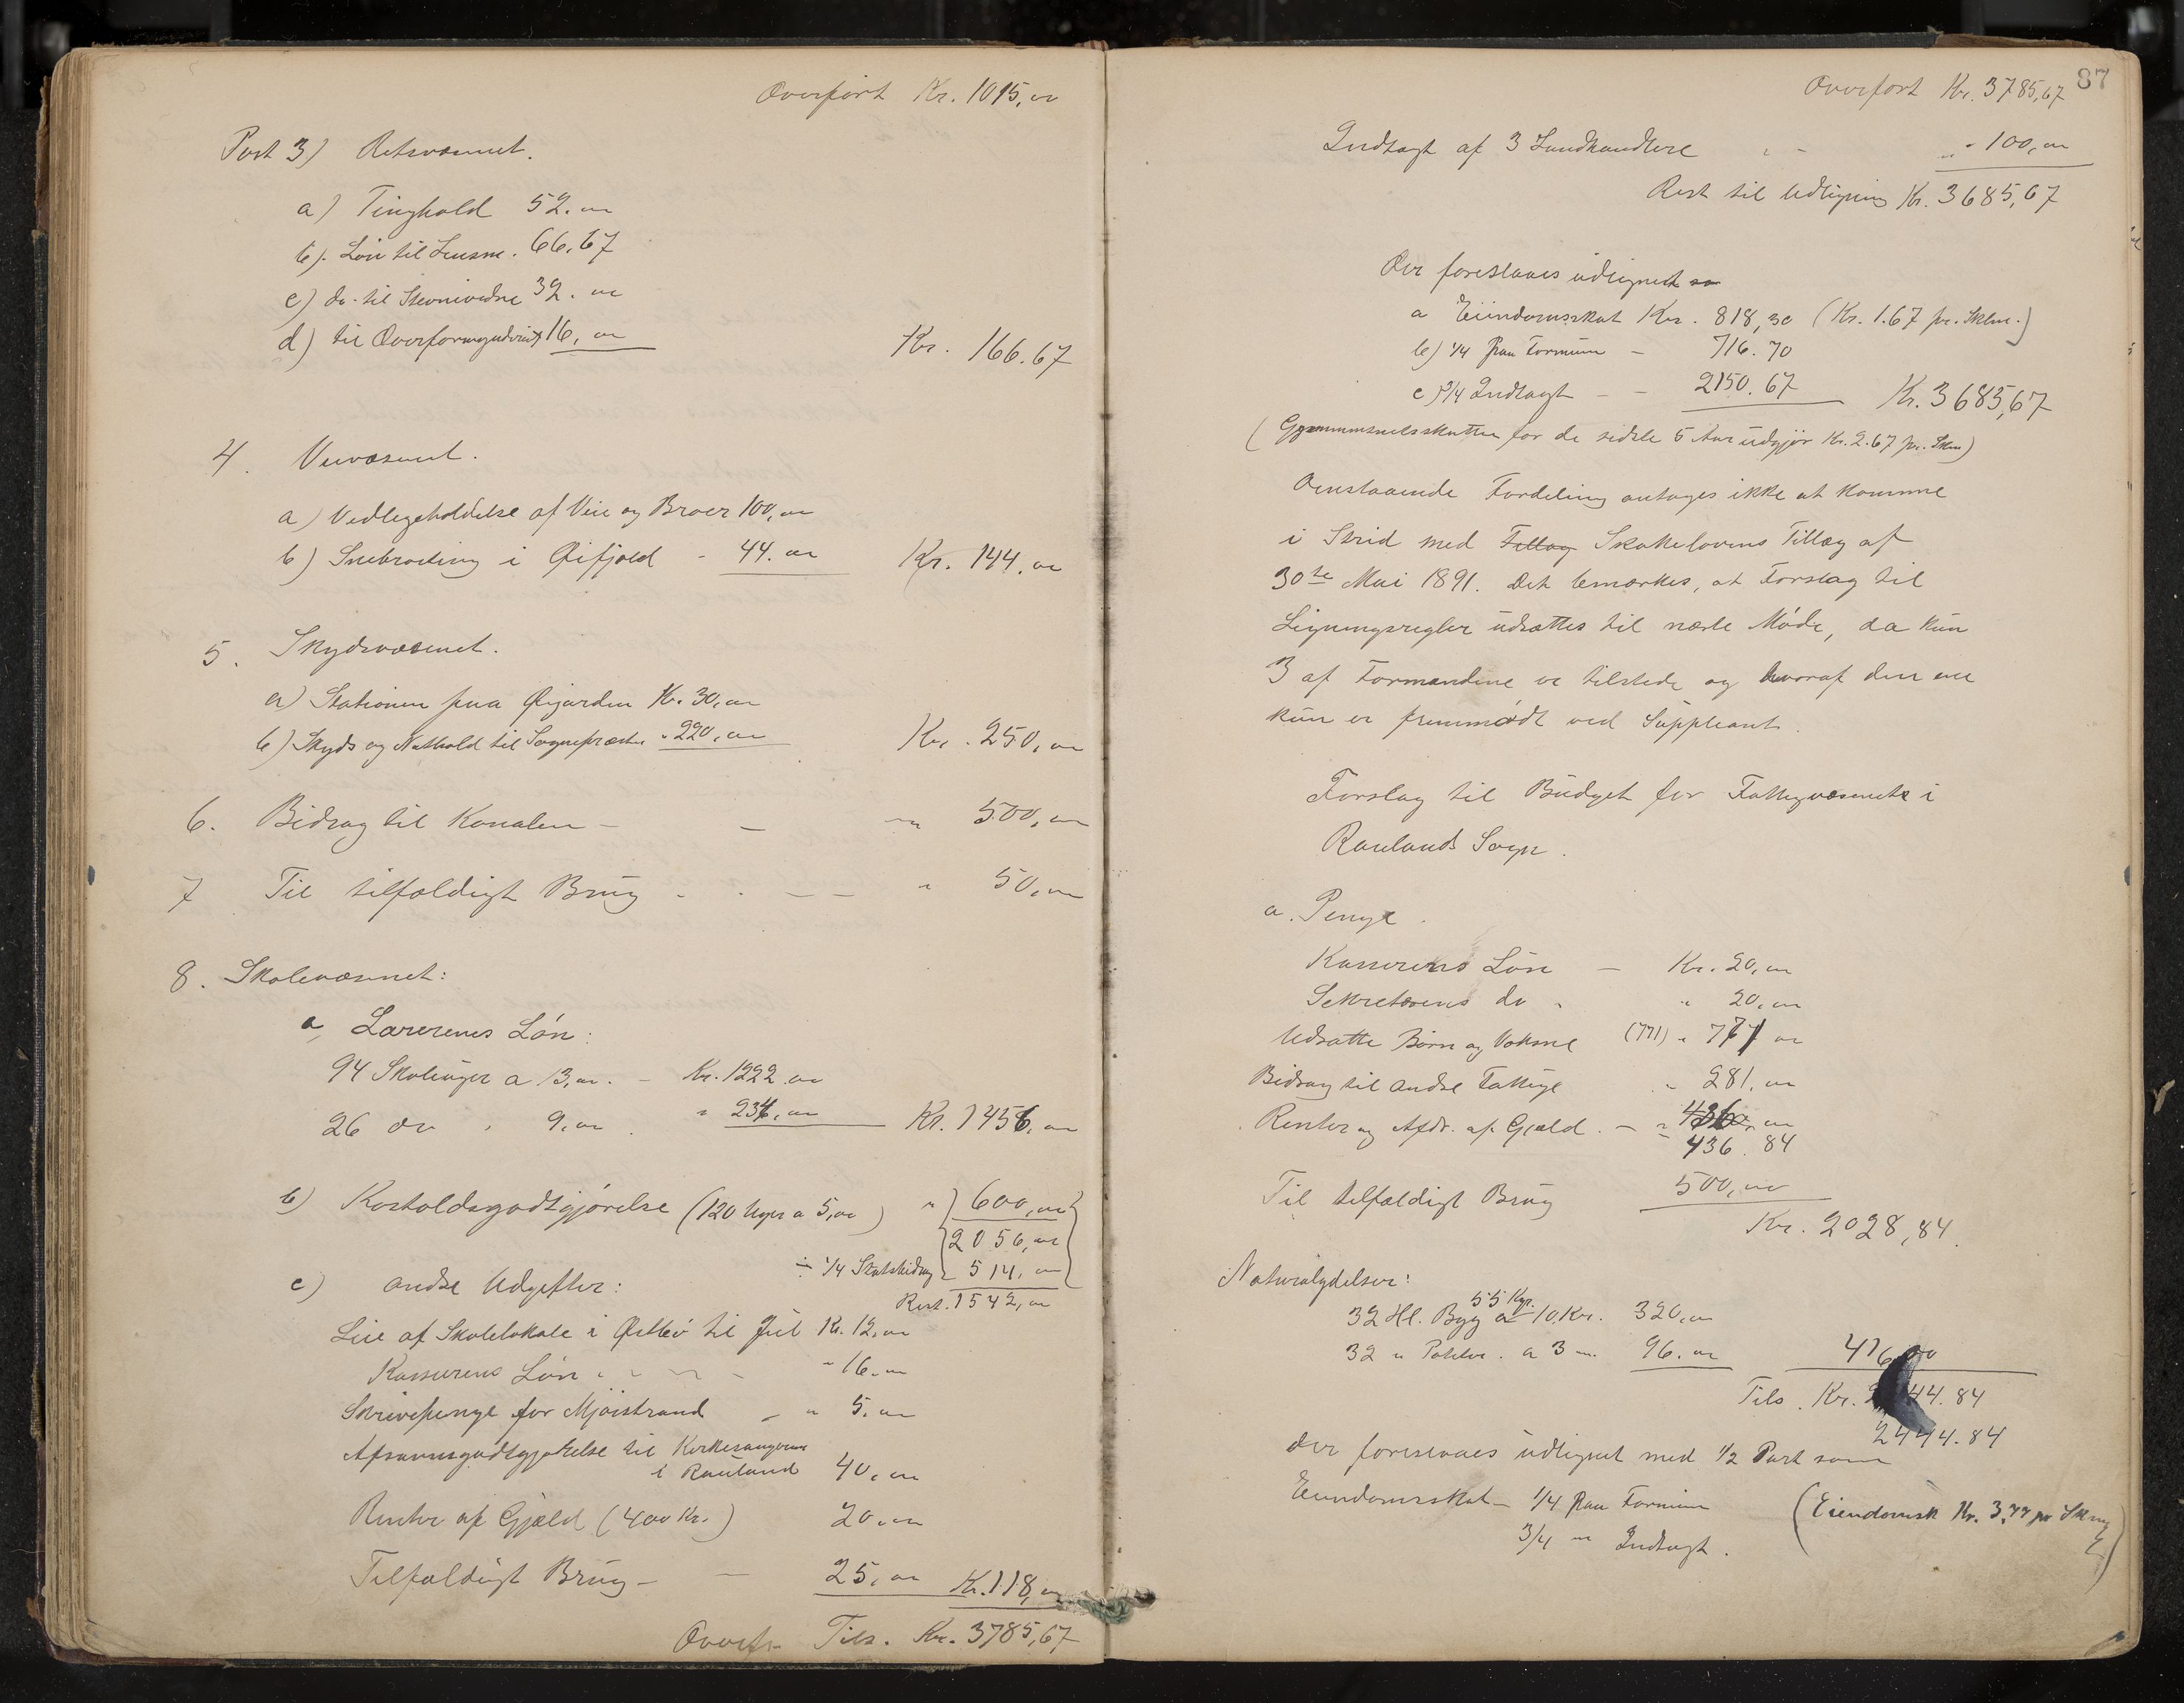 Overført Kr. 1015,00
Post 3) Retsvæsenet.
a) Tinghold 52.00
b). Løn til Lensm. 66.67
c) do. til Stevnevidne 32.00
d) til Overformynderiet 16,00
Kr. 166.67
4. Veivæsenet.
a) Vedligeholdelse af Veie og Broer 100,00
b) Snebrøiting i Øifjeld - 44.00 Kr. 144.00
5. Skydsvæsenet.
a) Stationen paa Øigarden Kr. 30,00
b) Skyds og Nathold til Sognepræsten " 220,00 Kr. 250,00
6. Bidrag til Kanalen - - " 500,00
7 Til tilfældigt Brug - - - " 50,00
8. Skolevæsenet:
a Lærerenes Løn:
94 Skoleuger a 13,00. - Kr. 1222.00
26 do " 9,00. " 234,00 Kr. 1456,00
b) Kostholdsgodtgjørelse (120 Uger a 5,00) " 600,00
2056,00
÷ 1/4 Statsbidrag 514,00
c) andre Udgifter:
Rest. 1542,00
Leie af Skolelokale i Østbø til Jul Kr. 12,00
Kasserens Løn " - - - " 16.00
Skrivepenge for Mjøistrand - " 5.00
Afsavnsgodtgjørelse til Kirkesangeren
i Rauland 40,00
Renter af Gjæld (400 Kr.) 20,00
Tilfældigt Brug - - 25,00 Kr. 118,00
Overf. Tils. Kr. 3785,67
87
Overført Kr. 3785,67
Indtægt af 3 Landhandlere " - " - 100,00
Rest til Udligning Kr. 3685,67
Der foreslaaes udlignet so
a Eiendomsskat Kr. 818,30 (Kr. 1.67 pr. Skm.)
b) 1/4 paa Formue - 716.70
c) 3/4 Indtægt - - 2150.67 Kr. 3685,67
(Gjennemsnitsskatten for de sidste 5 Aar udgjør Kr. 2.67 pr. Skm)
Omstaaende Fordeling antages ikke at komme
i Strid med Tillæg Skattelovens Tillæg af
30te Mai 1891. Det bemærkes, at Forslag til
Ligningsregler udsættes til næste Møde, da kun
3 af Formændene er tilstede og hvoraf den ene
kun er fremmødt ved Suppleant.
Forslag til Budget for Fattigvæsenet i
Raulands Sogn.
a. Penge.
Kasserens Løn - Kr. 20,00
Sekretærens do " " 20,00
Udsatte Børn og Voksne (771) " 771 00
Bidrag til andre Fattige " 281,00
Renter og Afdr. af Gjæld. - "
436.84
Til tilfældigt Brug 500,00
Kr. 2028,84.
Naturalydelser:
55 Kgr.
32 Hl. Byg a 10 Kr. 320,00
32 " Poteter. a 3 " 96.00 416,00
Tils. Kr. 44.84
2444.84
der foreslaaes udlignet med 1/2 Part som
Eiendomsskat - 1/4 paa Formue (Eiendomssk Kr. 3,77 pr Skm)
3/4 " Indtægt.